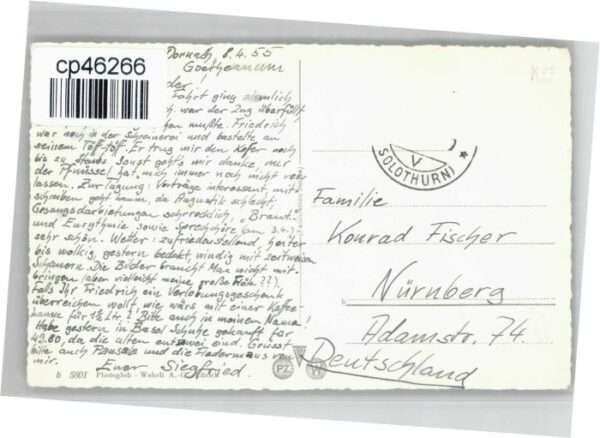 cp46266
Dornach, 8.4.55
Goetheanum
Fahrt ging ziemlich
war der Zug überfüllt
mußte. Friedrich
war noch in der Schreinerei und bastelte an
seinem Töff-töff. Er trug mir den Koffer noch
bis zu Sonst gehts mir danke, nur
der Pfnüssel hat mich immer noch nicht ver-
lassen. Zur Tagung: Vorträge interessant, mit-
schreiben geht kaum, da Akustik schlecht,
Gesangsdarbietungen schrecklich, "Braut"
und Eurythmie sowie Sprechchöre (am 3.4.)
sehr schön. Wetter: zufriedenstellend, heiter
bis wolkig, gestern bedekt, windig mit zeitweisen
Schauern. Die Bilder braucht Max nicht mit-
bringen (aber vielleicht meine große ??).
Falls Ihr Friedrich ein Verlobungsgeschenk
überreichen wollt, wie wärs mit einer Kaffee-
kanne für 1½ Ltr.? Bitte auch in meinem Name!
Habe gestern in Basel Schuhe gekauft für
49.80, da die alten entzwei sind. Grüsst
bitte auch und die Fledermaus von
mir.
Euer Siegfried.
SOLOTHURN
V
Familie
Konrad Fischer
Nürnberg
Adamstr. 74.
Deutschland
b 5801 Photoglob - Wehrli A.-G.
PZ
W